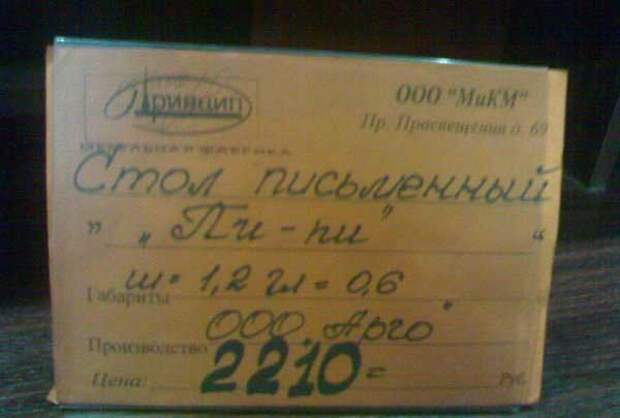 Принцип
ООО "МиКМ"
Пр. Просвещения д. 69
МЕБЕЛЬНАЯ ФАБРИКА
Стол письменный
" „Пи-пи" "
Габариты ш = 1,2 гл = 0,6
Производство ООО „Арго"
Цена: 2210= руб.